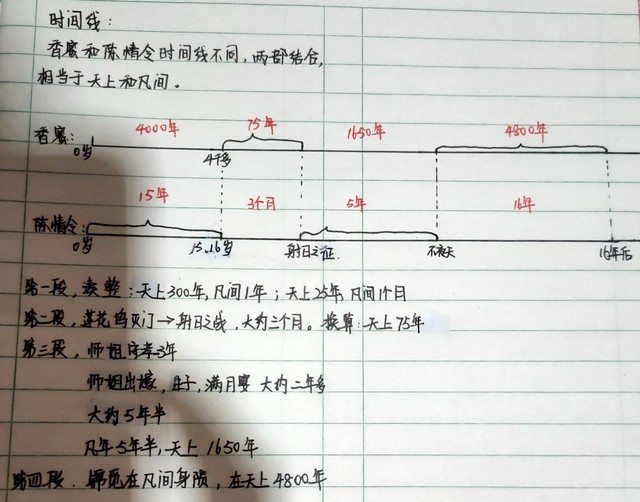 时间线:
香蜜和陈情令时间线不同,两部结合,
相当于天上和凡间。
4000年 75年 1650年 4800年
香蜜:
0岁 4千多
15年 3个月 5年 16年
陈情令:
0岁 15.16岁 射日之征 不夜天 16年后
第一段,凑整:天上300年,凡间1年;天上25年,凡间1个月
第二段,莲花坞灭门→射日之战,大约三个月。换算:天上75年
第三段,师姐守孝3年
师姐出嫁,生子,满月宴 大约二年多
大约5年半
凡年5年半,天上1650年
第四段.锦觅在凡间身陨,在天上4800年